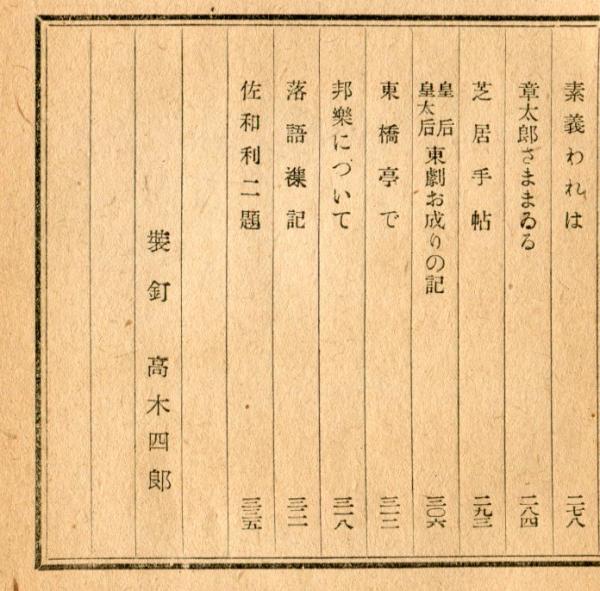 素義われは 二七八
章太郎さままゐる 二八四
芝居手帖 二九三
皇后
皇太后 東劇お成りの記 三〇六
東橋亭で 三一二
邦樂について 三一八
落語襍記 三二一
佐和利二題 三三五
裝釘 高木四郎